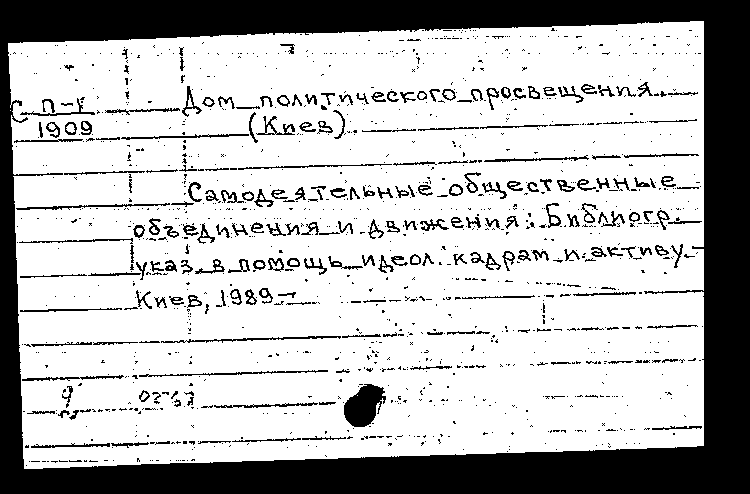 С П-1
1909
Дом политического просвещения.
(Киев).
Самодеятельные общественные
объединения и движения: Библиогр.
указ. в помощь идеол. кадрам и активу.-
Киев, 1989-